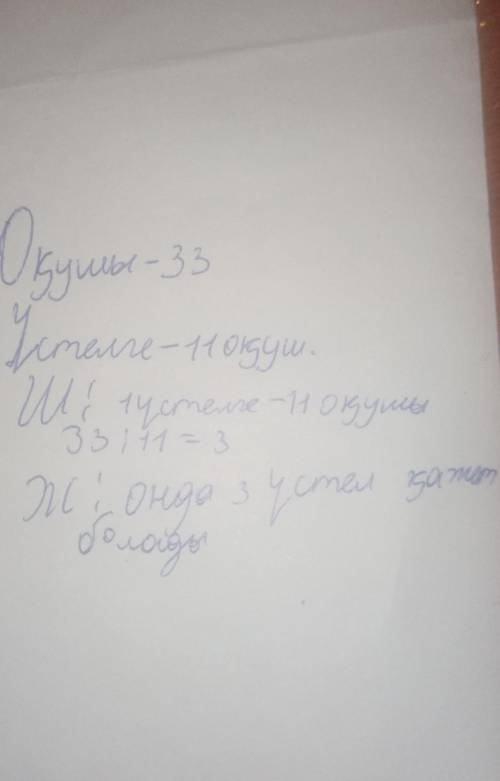 Оқушы-33
Үстелге-11 оқуш.
Ш: 1 үстелге-11 оқушы
33:11=3
Ж: онда 3 үстел қажет
болады